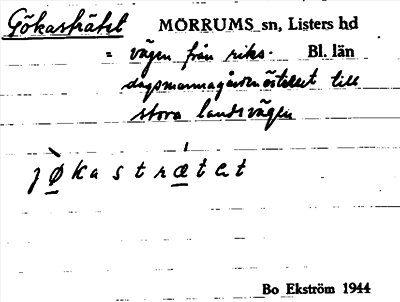 Gökasträtet MÖRRUMS sn, Listers hd
= vägen från riks- Bl. län
dagsmannagården österut till
stora landsvägen
jø̀kastrætet
Bo Ekström 1944